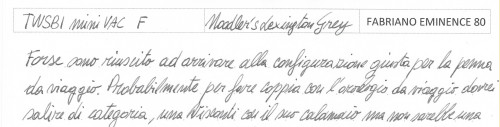 TWSBI mini VAC F Noodler's Lexington Grey FABRIANO EMINENCE 80
Forse sono riuscito ad arrivare alla configurazione giusta per la penna
da viaggio. Probabilmente per fare coppia con l'orologio da viaggio dovrei
salire di categoria, una Visconti con il suo calamaio ma non sarebbe una